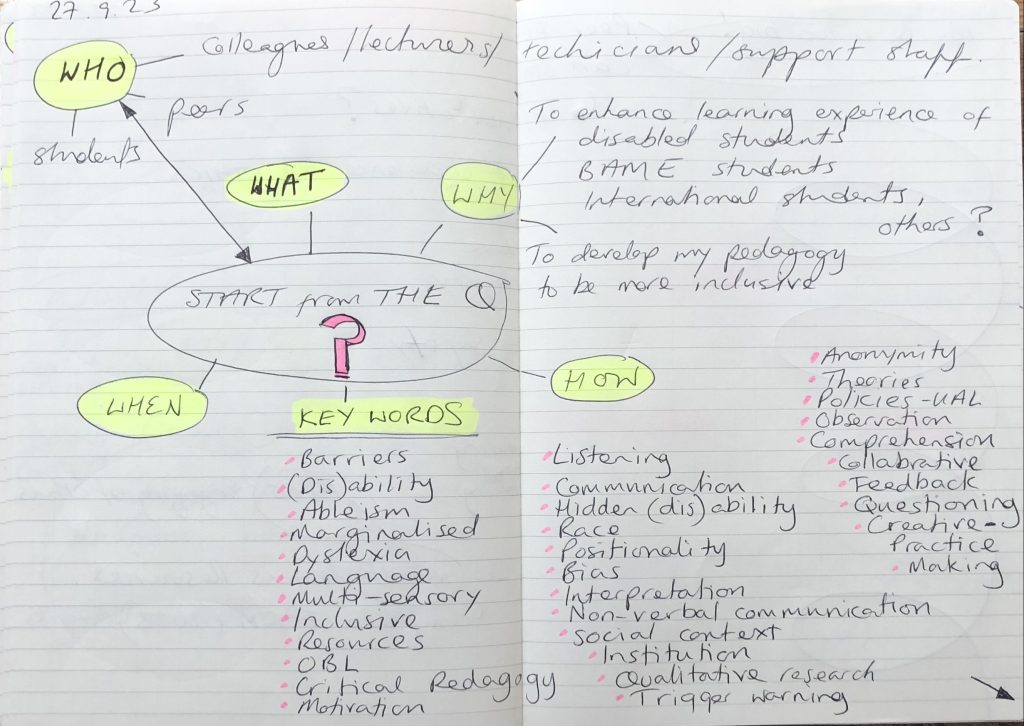 27.9.23
WHO
Colleagues/lecturers/techicians/support staff.
peers
students
WHAT
WHY
To enhance learning experience of
disabled students
BAME students
International students,
others ?
To develop my pedagogy
to be more inclusive
START from THE Q
?
WHEN
HOW
KEY WORDS
Barriers
(Dis)ability
Ableism
Marginalised
Dyslexia
Language
Multi-sensory
Inclusive
Resources
OBL
Critical Pedagogy
Motivation
Listening
Communication
Hidden (dis)ability
Race
Positionality
Bias
Interpretation
Non-verbal communication
Social context
Institution
Qualitative research
Trigger warning
Anonymity
Theories
Policies-UAL
Observation
Comprehension
Collabrative
Feedback
Questioning
Creative-
Practice
Making